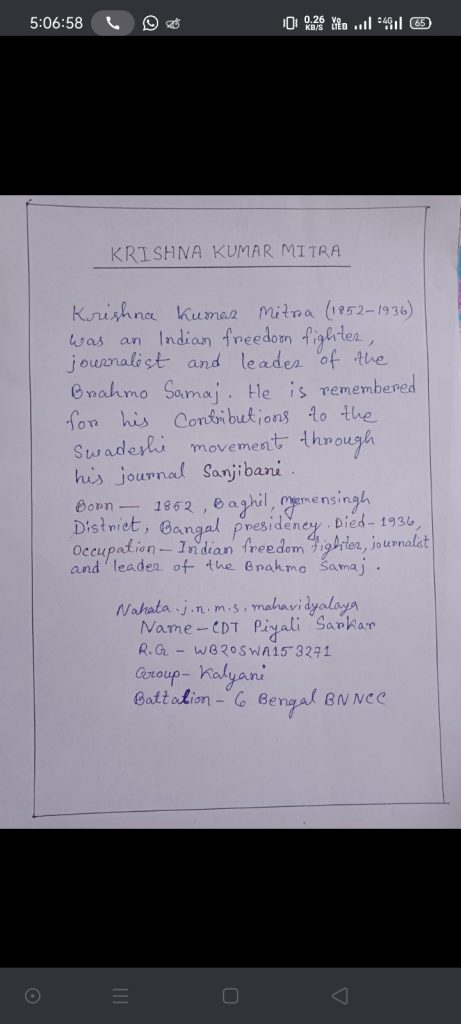 5:06:58
0.26 KB/S
Vo LTED
4G
65
KRISHNA KUMAR MITRA
Krishna Kumar Mitra (1852-1936)
was an Indian freedom fighter,
journalist and leader of the
Brahmo Samaj. He is remembered
for his Contributions to the
Swadeshi movement through
his journal Sanjibani.
Born — 1852, Baghil, Mymensingh
District, Bangal presidency. Died - 1936,
Occupation — Indian freedom fighter, journalist
and leader of the Brahmo Samaj.
Nahata.j.n.m.s. mahavidyalaya
Name - CDT Piyali Sarkar
R.G - WB20SWA153271
Group - Kalyani
Battalion - 6 Bengal BN NCC